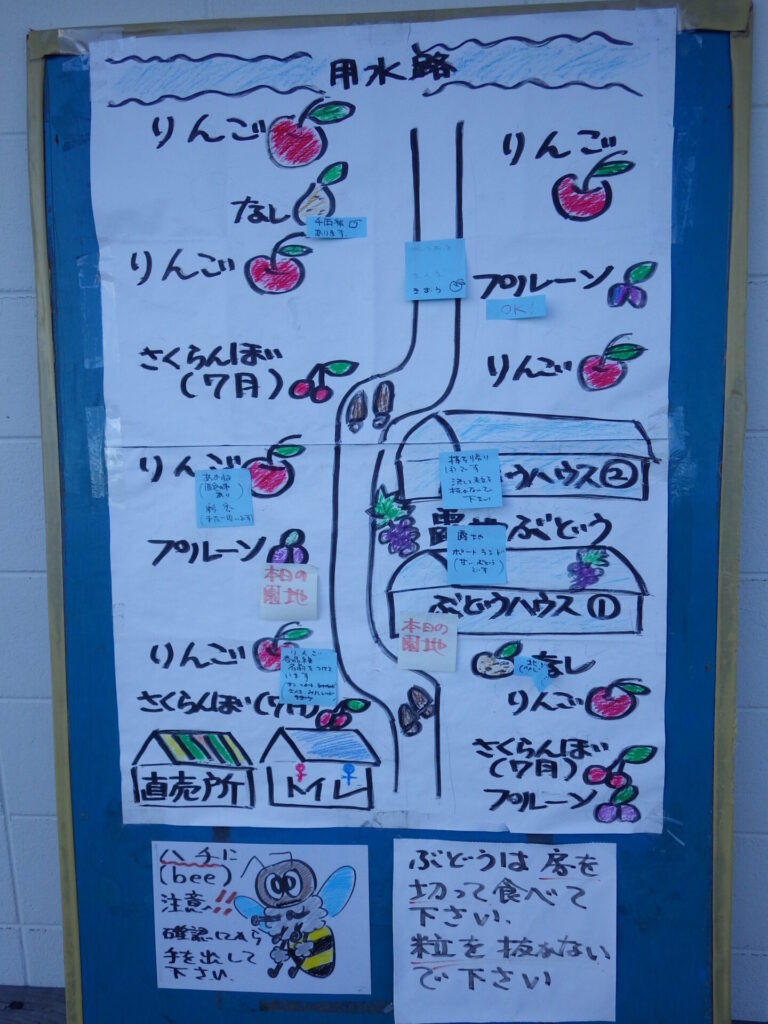 用水路
りんご
りんご
なし
りんご
プルーン
OK!
さくらんぼい
(7月)
りんご
りんご
うハウス②
持ち帰り
下さい
プルーン
露地ぶどう
露地
ポートランド
本日の
園地
ぶどうハウス①
本日の
園地
りんご
りんご
なし
りんご
さくらんぼい(7月)
さくらんぼい
(7月)
プルーン
直売所
トイレ
ハチに
(bee)
注意!!
確認してから
手を出して
下さい
ぶどうは房を
切って食べて
下さい、
粒を抜かない
で下さい